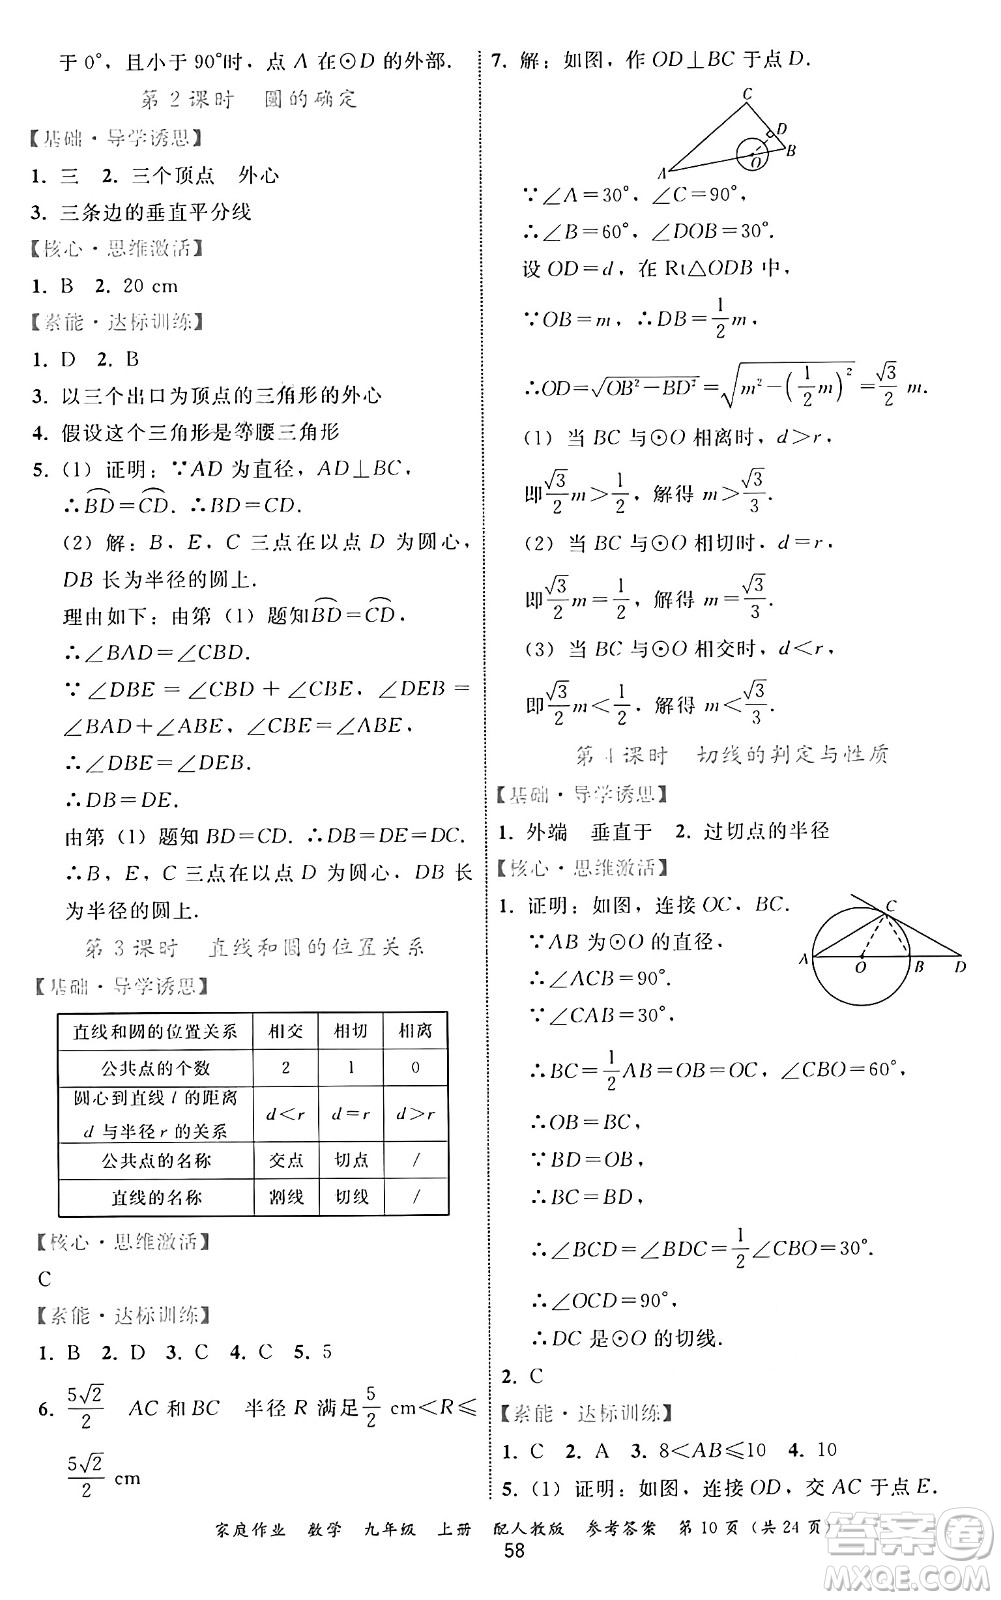 于 0°，且小于 90°时，点 A 在⊙D 的外部.
第 2 课时　圆的确定
【基础·导学诱思】
1. 三　2. 三个顶点　外心
3. 三条边的垂直平分线
【核心·思维激活】
1. B　2. 20 cm
【素能·达标训练】
1. D　2. B
3. 以三个出口为顶点的三角形的外心
4. 假设这个三角形是等腰三角形
5. (1) 证明：∵AD 为直径，AD⊥BC，
∴B͡D＝C͡D. ∴BD＝CD.
(2) 解：B，E，C 三点在以点 D 为圆心，
DB 长为半径的圆上.
理由如下：由第（1）题知B͡D＝C͡D，
∴∠BAD＝∠CBD.
∵∠DBE＝∠CBD＋∠CBE，∠DEB＝
∠BAD＋∠ABE，∠CBE＝∠ABE，
∴∠DBE＝∠DEB.
∴DB＝DE.
由第（1）题知 BD＝CD. ∴DB＝DE＝DC.
∴B，E，C 三点在以点 D 为圆心，DB 长
为半径的圆上.
第 3 课时　直线和圆的位置关系
【基础·导学诱思】
直线和圆的位置关系　相交　相切　相离
公共点的个数　2　1　0
圆心到直线 l 的距离
d 与半径 r 的关系　d＜r　d＝r　d＞r
公共点的名称　交点　切点　/
直线的名称　割线　切线　/
【核心·思维激活】
C
【素能·达标训练】
1. B　2. D　3. C　4. C　5. 5
6. 5√2/2　AC 和 BC　半径 R 满足 5/2 cm＜R≤
5√2/2 cm
7. 解：如图，作 OD⊥BC 于点 D.
C
D
B
O
A
∵∠A＝30°，∠C＝90°，
∴∠B＝60°，∠DOB＝30°.
设 OD＝d，在 Rt△ODB 中，
∵OB＝m，∴DB＝1/2 m，
∴OD＝√(OB²－BD²)＝√(m²－(1/2 m)²)＝√3/2 m.
(1) 当 BC 与⊙O 相离时，d＞r，
即√3/2 m＞1/2，解得 m＞√3/3.
(2) 当 BC 与⊙O 相切时，d＝r，
即√3/2 m＝1/2，解得 m＝√3/3.
(3) 当 BC 与⊙O 相交时，d＜r，
即√3/2 m＜1/2，解得 m＜√3/3.
第 4 课时　切线的判定与性质
【基础·导学诱思】
1. 外端　垂直于　2. 过切点的半径
【核心·思维激活】
1. 证明：如图，连接 OC，BC.
C
A　O　B　D
∵AB 为⊙O 的直径，
∴∠ACB＝90°.
∵∠CAB＝30°，
∴BC＝1/2 AB＝OB，∠CBO＝60°，
∴OB＝BC.
∵BD＝OB，
∴BC＝BD，
∴∠BCD＝∠BDC＝1/2∠CBO＝30°.
∴∠OCD＝90°，
∴DC 是⊙O 的切线.
2. C
【素能·达标训练】
1. C　2. A　3. 8＜AB≤10　4. 10
5. (1) 证明：如图，连接 OD，交 AC 于点 E.
家庭作业　数学　九年级　上册　配人教版　参考答案　第 10 页（共 24 页）
58
作业答案精灵
MXQE.COM